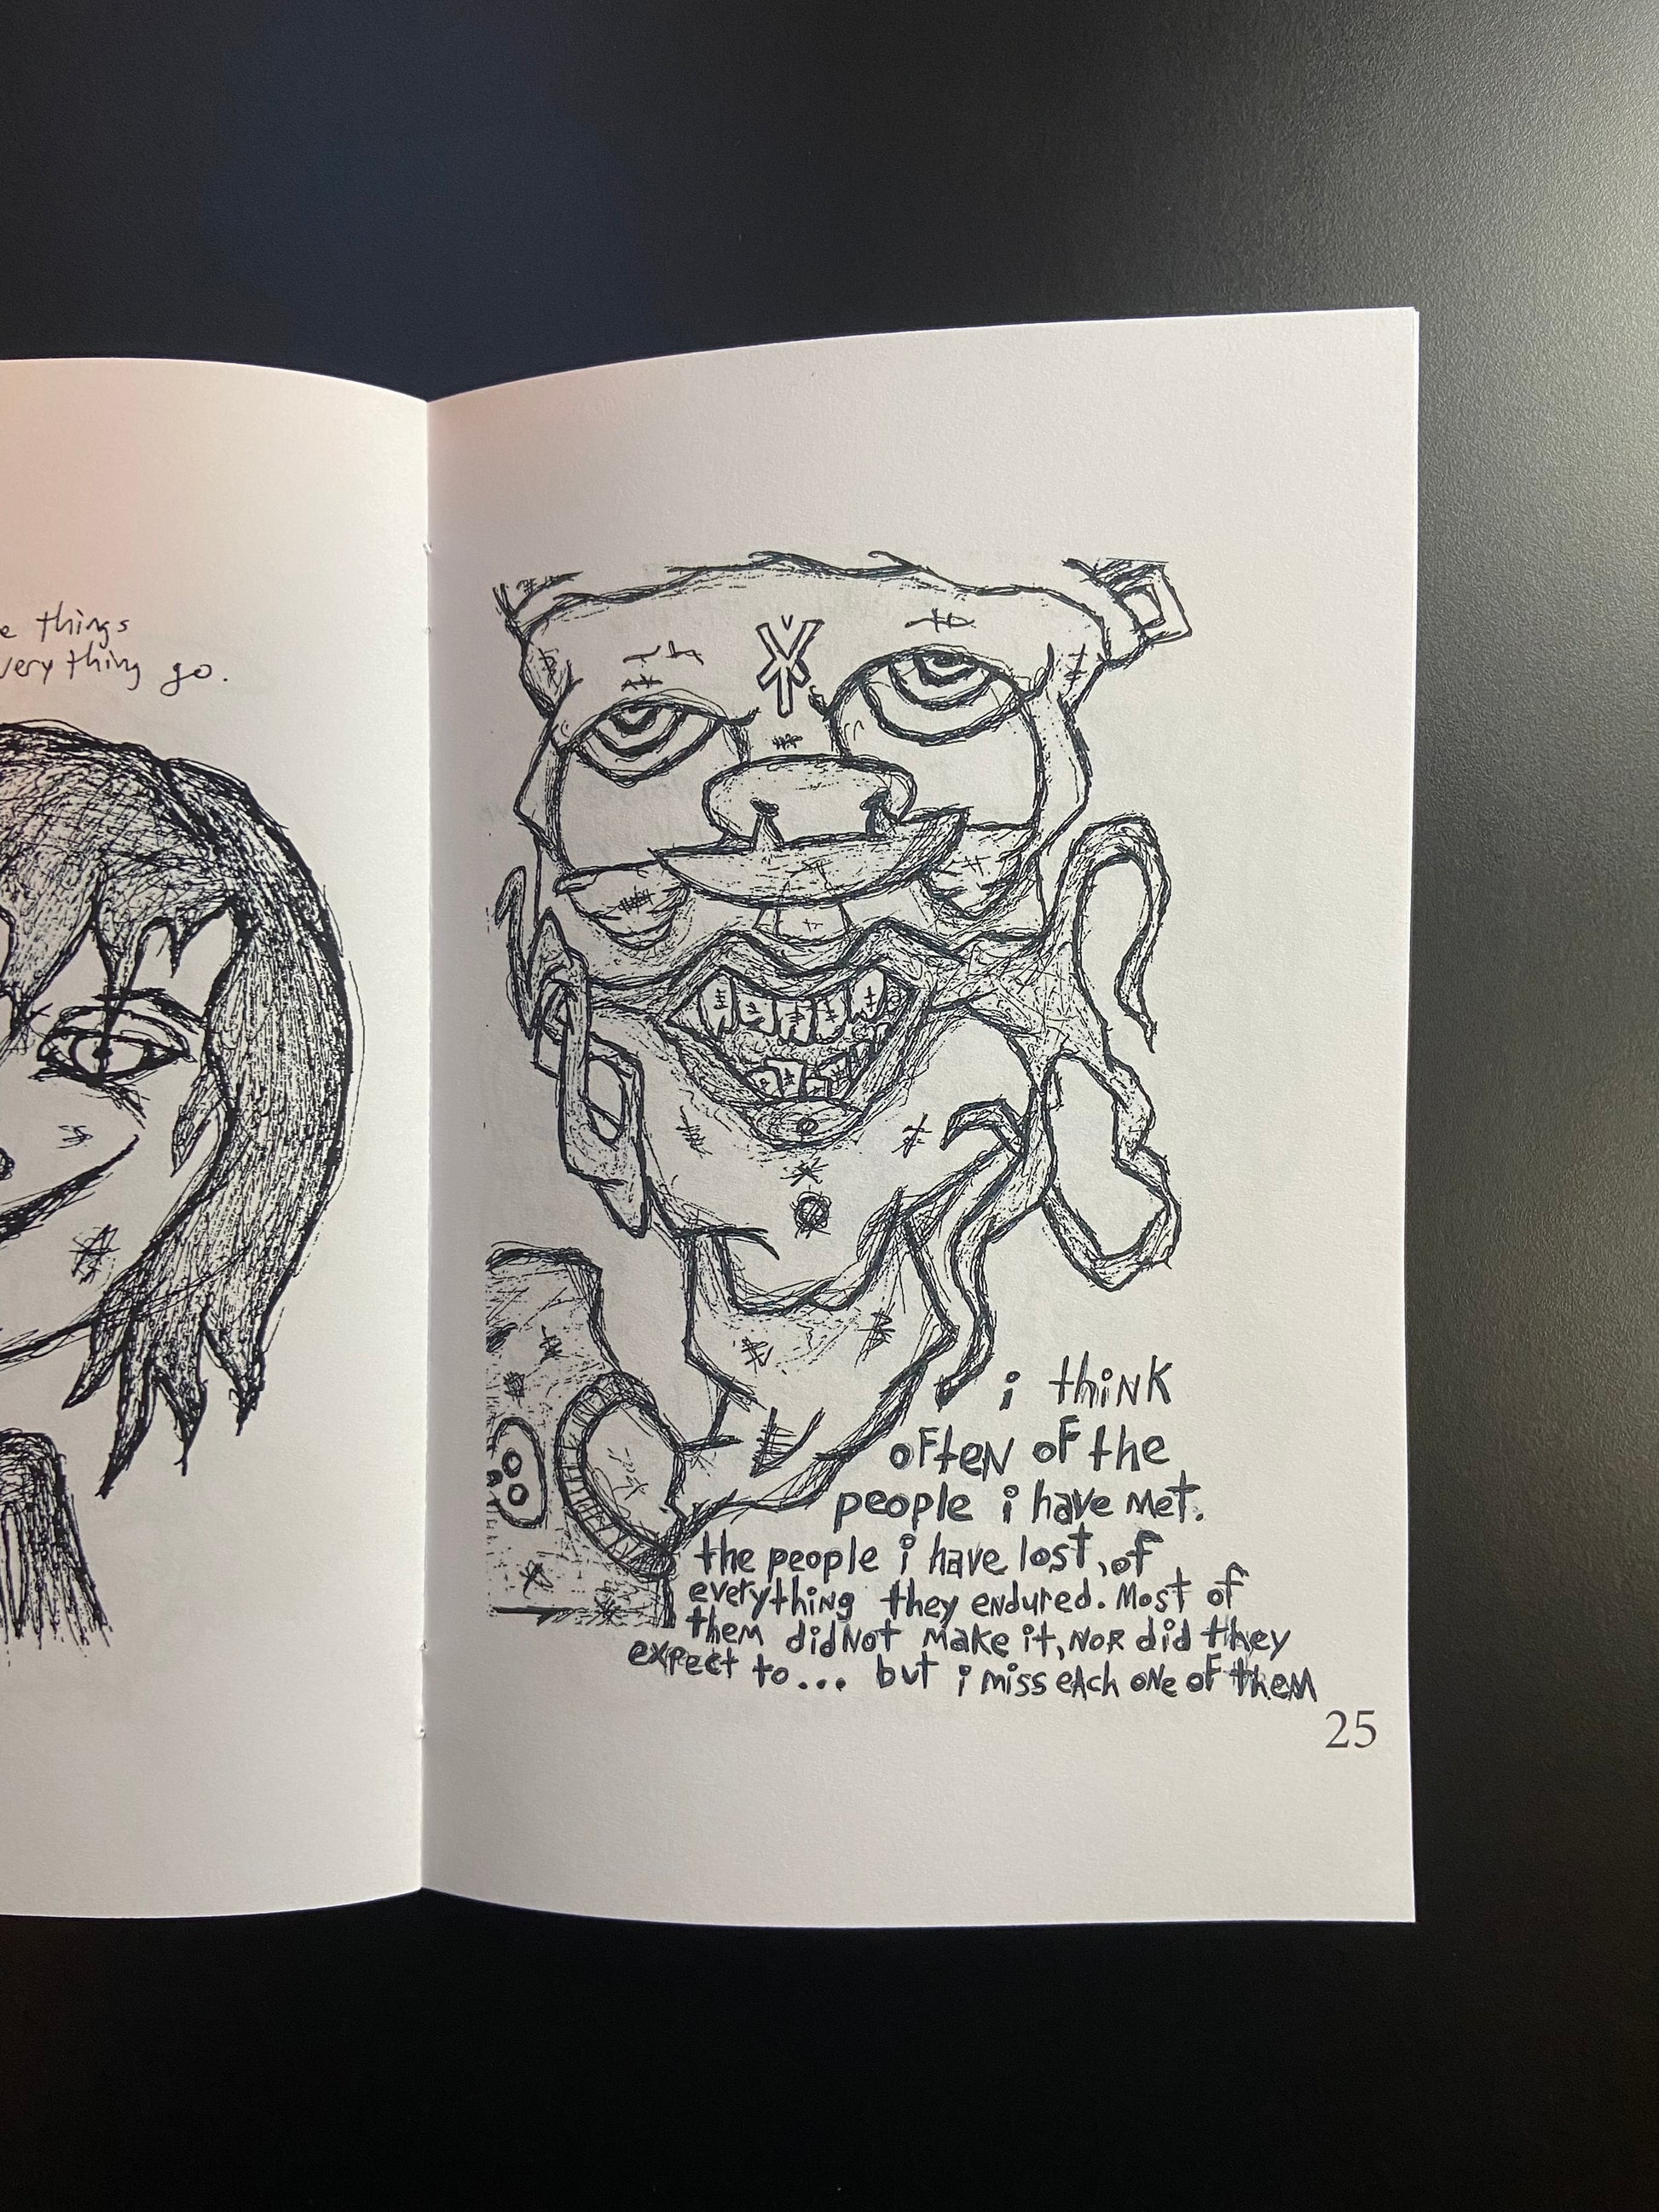 e things
very thing go.
i think
often of the
people i have met.
the people i have lost, of
everything they endured. Most of
them did not make it, nor did they
expect to... but i miss each one of them
25